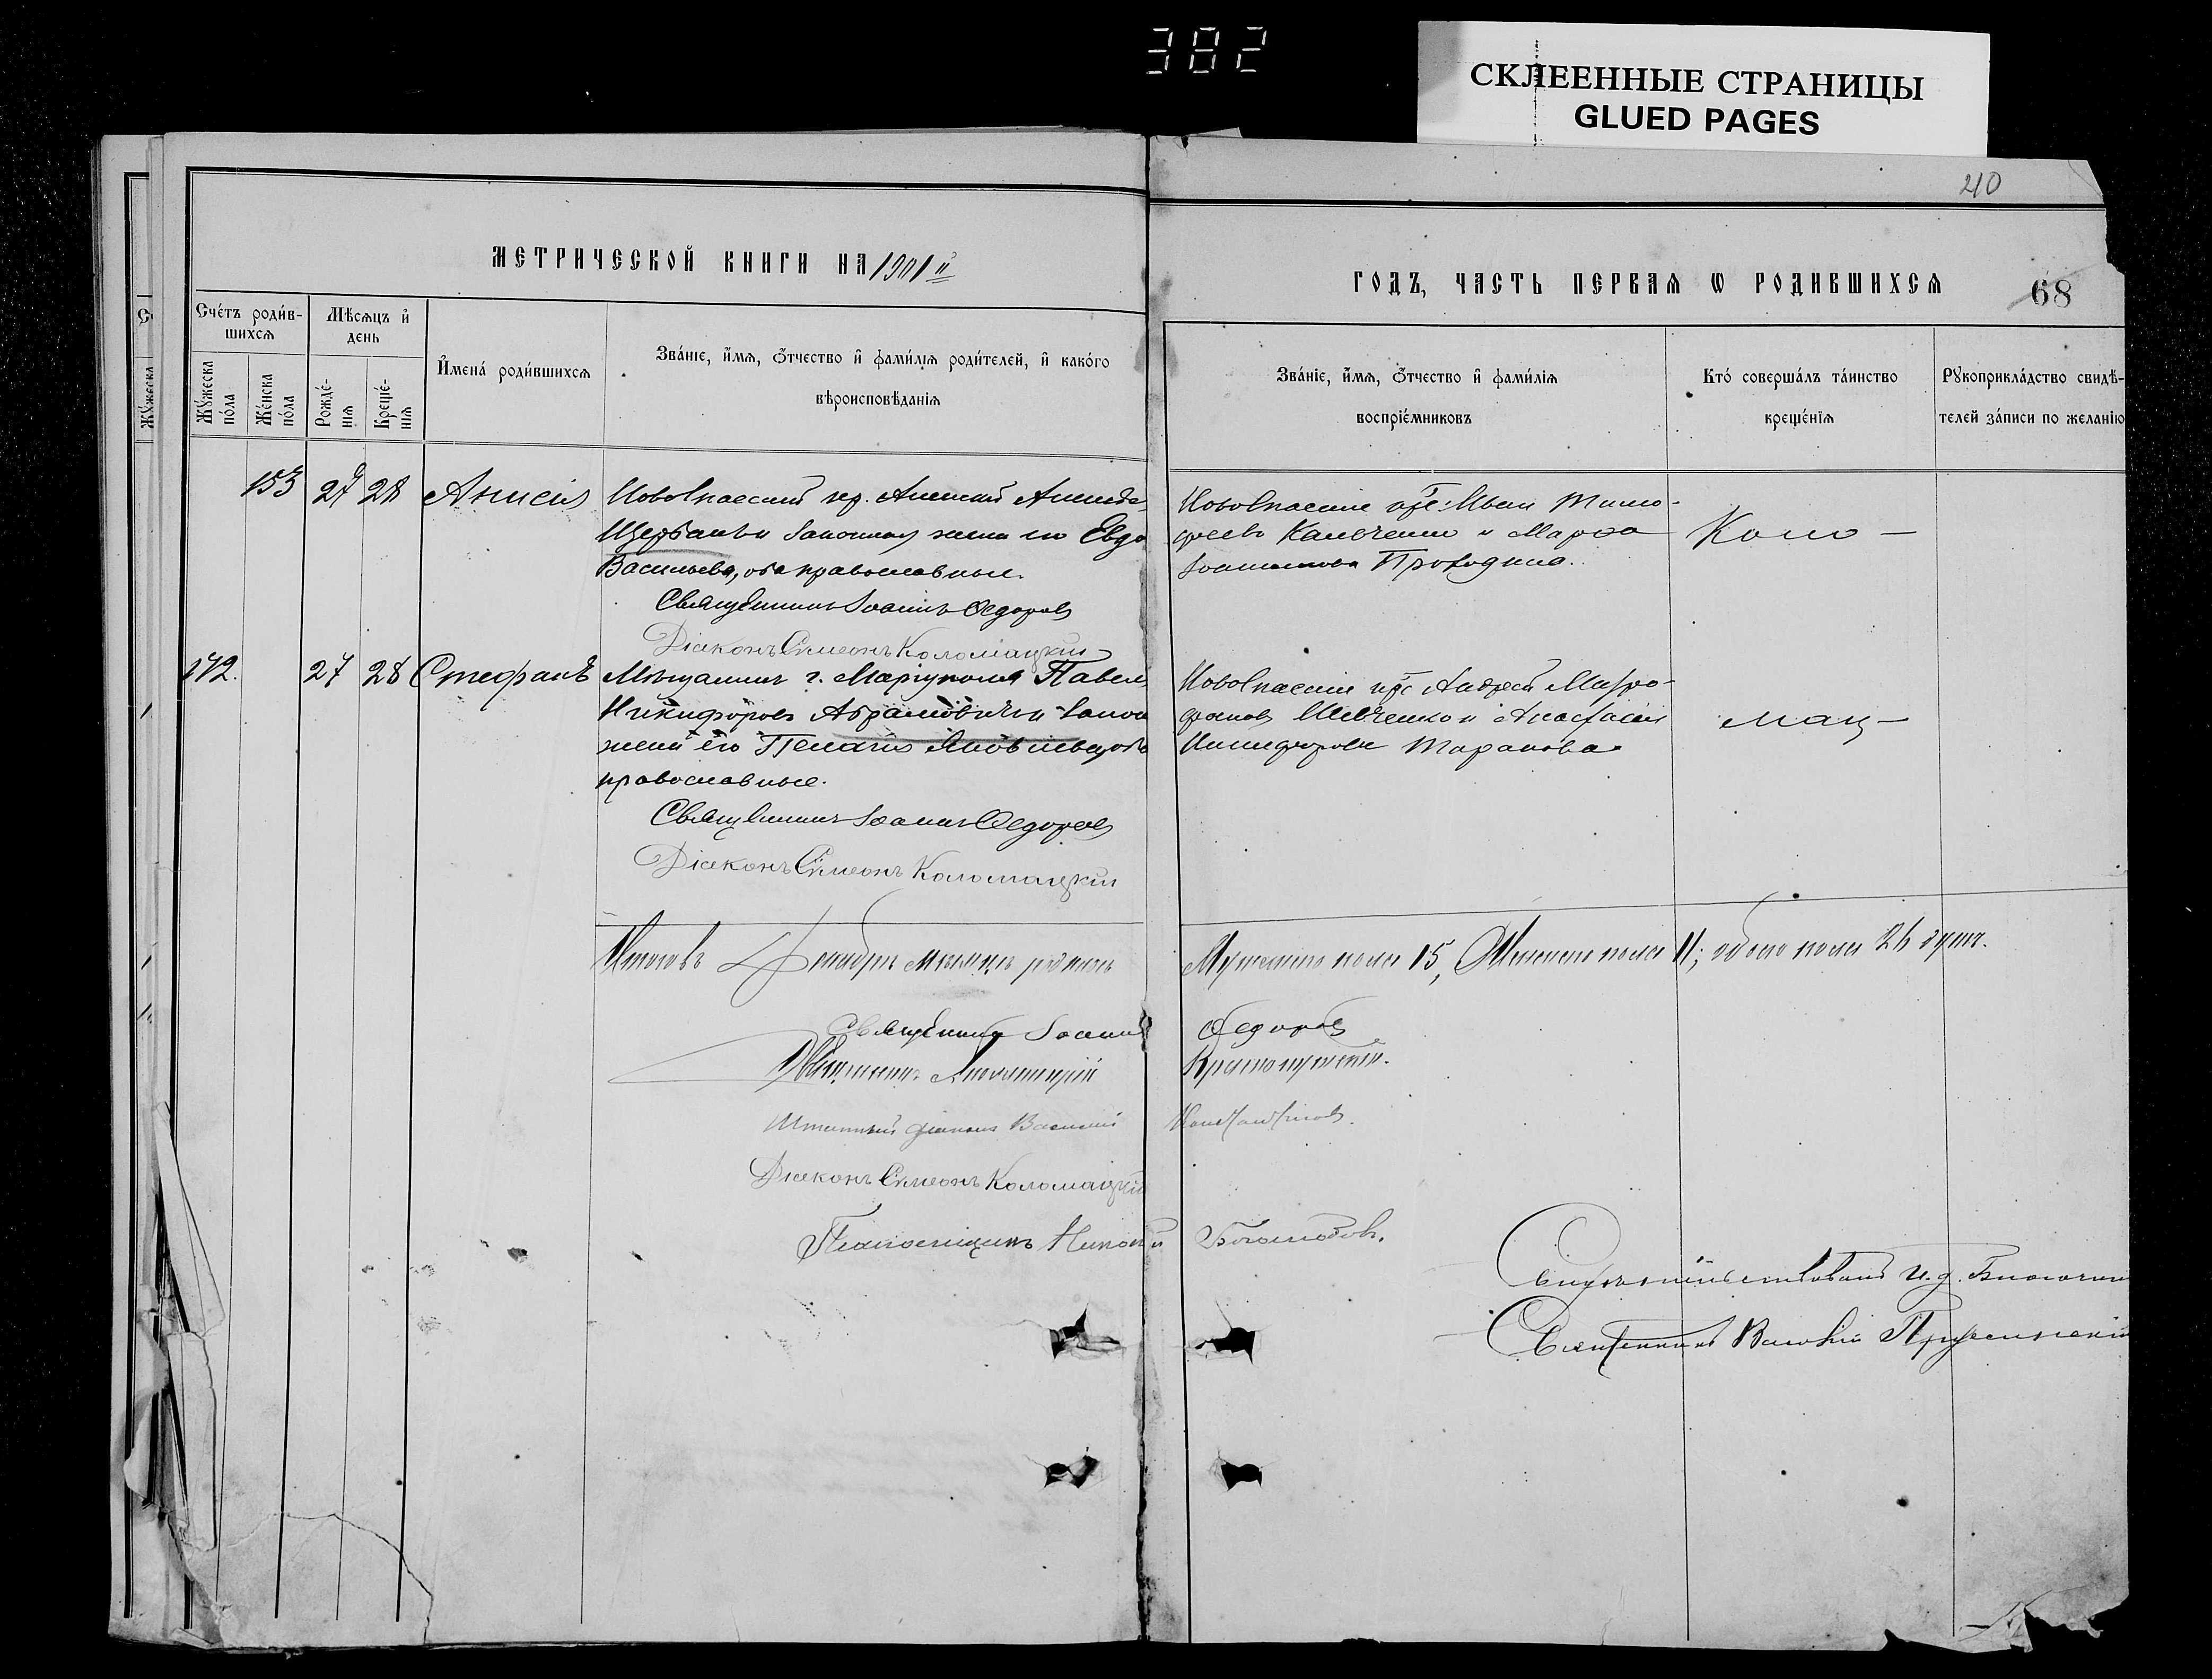 382
СКЛЕЕННЫЕ СТРАНИЦЫ
GLUED PAGES
40
МЕТРИЧЕСКОЙ КНИГИ НА 1901й
ГОДЪ, ЧАСТЬ ПЕРВАЯ Ѡ РОДИВШИХСѦ
68
Счётъ роди́в-
шихсѧ
Мѣсѧцъ и҆
день
Мꙋжеска
по́ла
Же́нска
по́ла
Рожде́-
нїѧ
Креще́-
нїѧ
И҆мена̀ роди́вшихсѧ
Зва́нїе, и҆́мѧ, ѻ҆́тчество и҆ фами́лїѧ роди́телей, и҆ како́го
вѣроисповѣ́данїѧ
Зва́нїе, и҆́мѧ, ѻ҆́тчество и҆ фами́лїѧ
воспрїе́мниковъ
Кто̀ соверша́лъ та́инство
креще́нїѧ
Рꙋкоприкла́дство свидѣ́-
телей за́писи по жела́нїю
153 27 28 Анисія
Новоспасскій кр. Алексій
Щербакъ и законная жена его Евдо
Васильева, оба православные.
Священникъ Іоаннъ Федоровъ
Діаконъ Симеонъ Коломацкій
Новоспаскіе Иван Тимо-
феевъ и Марфа
Іоаннова
Коло-
172. 27 28 Стефанъ
Мѣщанинъ г. Маріуполя Павелъ
Никифоровъ Абрамовичъ и закон
жена его Пелагія Яковлева, оба
православные.
Священникъ Іоаннъ Федоровъ
Діаконъ Симеонъ Коломацкій
Новоспаскіе Андрей Митро-
фановъ Шевченко и Анастасія
Никифорова Таранова
мац-
Итого въ Декабрѣ мѣсяцѣ родилось
Мужескаго пола 15, Женскаго пола 11; обоего пола 26 душъ.
Священникъ Іоаннъ Федоровъ
Священникъ
Штатный діаконъ Василій Константиновъ.
Діаконъ Симеонъ Коломацкій
Псаломщикъ Николай
Свидѣтельствовалъ И. д. Благочин
Священникъ Василій